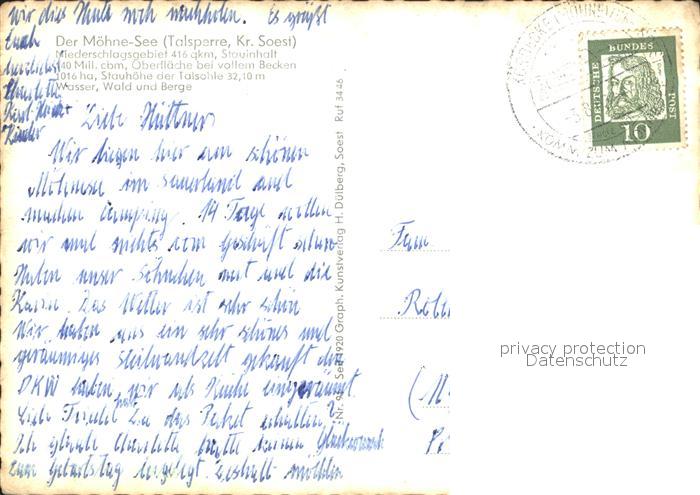 wir dies Mal noch nachholen. Es grüßt
Euch
herzlichst
Charlotte
Karl-Heinz
Der Möhne-See (Talsperre, Kr. Soest)
Niederschlagsgebiet 416 qkm, Stauinhalt
140 Mill. cbm, Oberfläche bei vollem Becken
1016 ha, Stauhöhe der Talsohle 32,10 m
Wasser, Wald und Berge
Liebe Hüttner,
Wir liegen hier am schönen
Möhnesee im Sauerland und
machen Camping. 14 Tage wollen
wir mal nichts vom Geschäft sehen
Haben unser Söhnchen mit und die
Das Wetter ist sehr schön
Wir haben uns ein sehr schönes und
geräumiges Steilwandzelt gekauft den
DKW haben wir als Küche eingeräumt.
Liebe hat das Paket erhalten?
Ich glaube Charlotte hatte keinen
zum Geburtstag beigelegt. Deshalb möchten
Nr. Graph. Kunstverlag H. Dülberg, Soest Ruf 3446
DEUTSCHE
BUNDES
POST
10
Fam
(M
privacy protection
Datenschutz